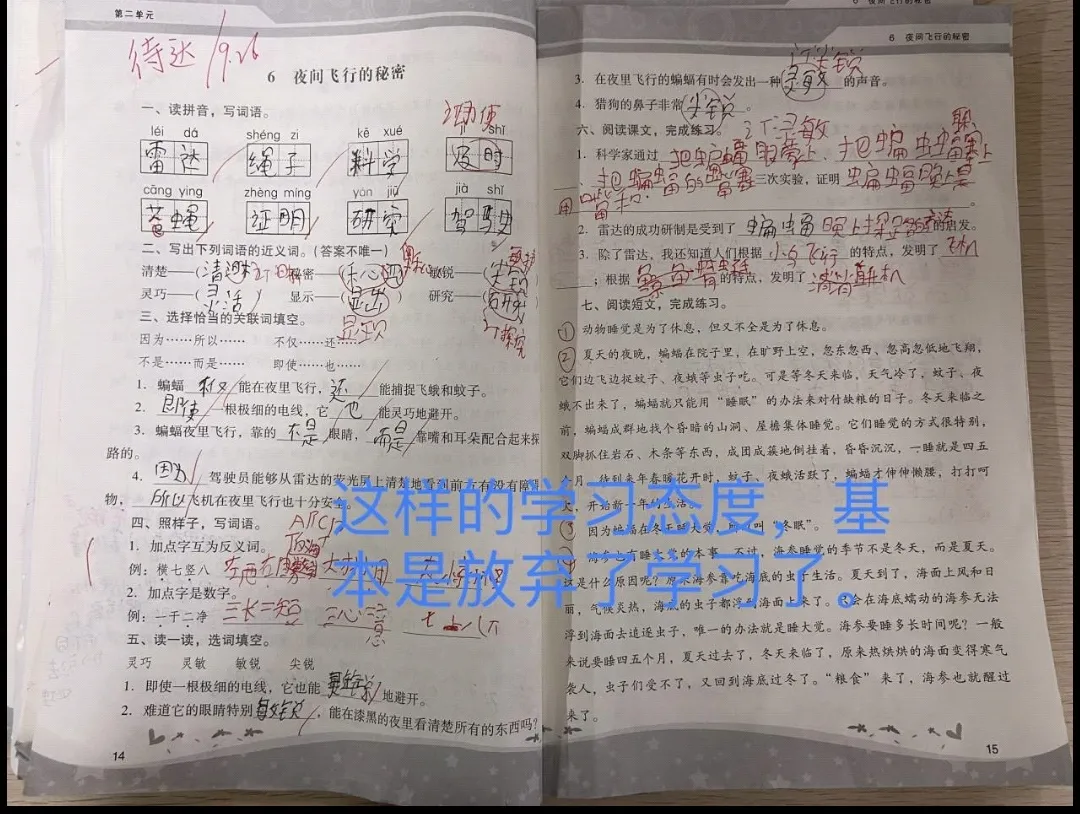 第二单元
待达 9.26
6 夜间飞行的秘密
一、读拼音，写词语。
léi dá shéng zi kē xué jí shǐ
雷达 绳子 科学
cāng ying zhèng míng yán jiū jià shǐ
苍蝇 证明 研究 驾驶
二、写出下列词语的近义词。(答案不唯一)
清楚——( ) 秘密——( ) 敏锐——( )
灵巧——( ) 显示——(显出) 研究——( )
显现
三、选择恰当的关联词填空。
因为……所以…… 不仅……还……
不是……而是…… 即使……也……
1. 蝙蝠 能在夜里飞行，还能捕捉飞蛾和蚊子。
2. 即使一根极细的电线，它也能灵巧地避开。
3. 蝙蝠夜里飞行，靠的不是眼睛，而是靠嘴和耳朵配合起来探
路的。
4. 因为驾驶员能够从雷达的荧光屏上清楚地看到前方有没有障
物，所以飞机在夜里飞行也十分安全。
四、照样子，写词语。
1. 加点字互为反义词。
例：横七竖八
2. 加点字是数字。
例：一干二净 三长二短 三心二意 七上八下
五、读一读，选词填空。
灵巧 灵敏 敏锐 尖锐
1. 即使一根极细的电线，它也能 地避开。
2. 难道它的眼睛特别敏锐，能在漆黑的夜里看清楚所有的东西吗？
14
6 夜间飞行的秘密
尖锐
3. 在夜里飞行的蝙蝠有时会发出一种灵敏的声音。
4. 猎狗的鼻子非常尖锐。
灵敏
六、阅读课文，完成练习。
1. 科学家通过 把蝙蝠眼蒙上、把蝙蝠
、把蝙蝠的 三次实验，证明
2. 雷达的成功研制是受到了蝙蝠晚上探路的启发。
3. 除了雷达，我还知道人们根据小鸟飞行的特点，发明了飞机
；根据 的特点，发明了
七、阅读短文，完成练习。
① 动物睡觉是为了休息，但又不全是为了休息。
② 夏天的夜晚，蝙蝠在院子里，在旷野上空，忽东忽西、忽高忽低地飞翔，
它们边飞边捉蚊子、夜蛾等虫子吃。可是等冬天来临，天气冷了，蚊子、夜
蛾不出来了，蝙蝠就只能用“睡眠”的办法来对付缺粮的日子。冬天来临之
前，蝙蝠成群地找个昏暗的山洞、屋檐集体睡觉。它们睡觉的方式很特别，
双脚抓住岩石、木条等东西，成团成簇地倒挂着，昏昏沉沉，一睡就是四五
个月。待到来年春暖花开时，蚊子、夜蛾活跃了，蝙蝠才伸伸懒腰，打打呵
欠，开始新一年的生活。
③ 因为蝙蝠在冬天睡大觉，所以叫“冬眠”。
④ 海参也有睡大觉的本事。不过，海参睡觉的季节不是冬天，而是夏天。
这是什么原因呢？原来海参靠吃海底的虫子生活。夏天到了，海面上风和日
丽，气候炎热，海底的虫子都浮到海面上来了。只会在海底蠕动的海参无法
浮到海面去追逐虫子，唯一的办法就是睡大觉。海参要睡多长时间呢？一般
来说要睡四五个月，夏天过去了，冬天来临了，原来热烘烘的海面变得寒气
袭人，虫子们受不了，又回到海底过冬了。“粮食”来了，海参也就醒过
来了。
15
这样的学习态度，基
本是放弃了学习了。